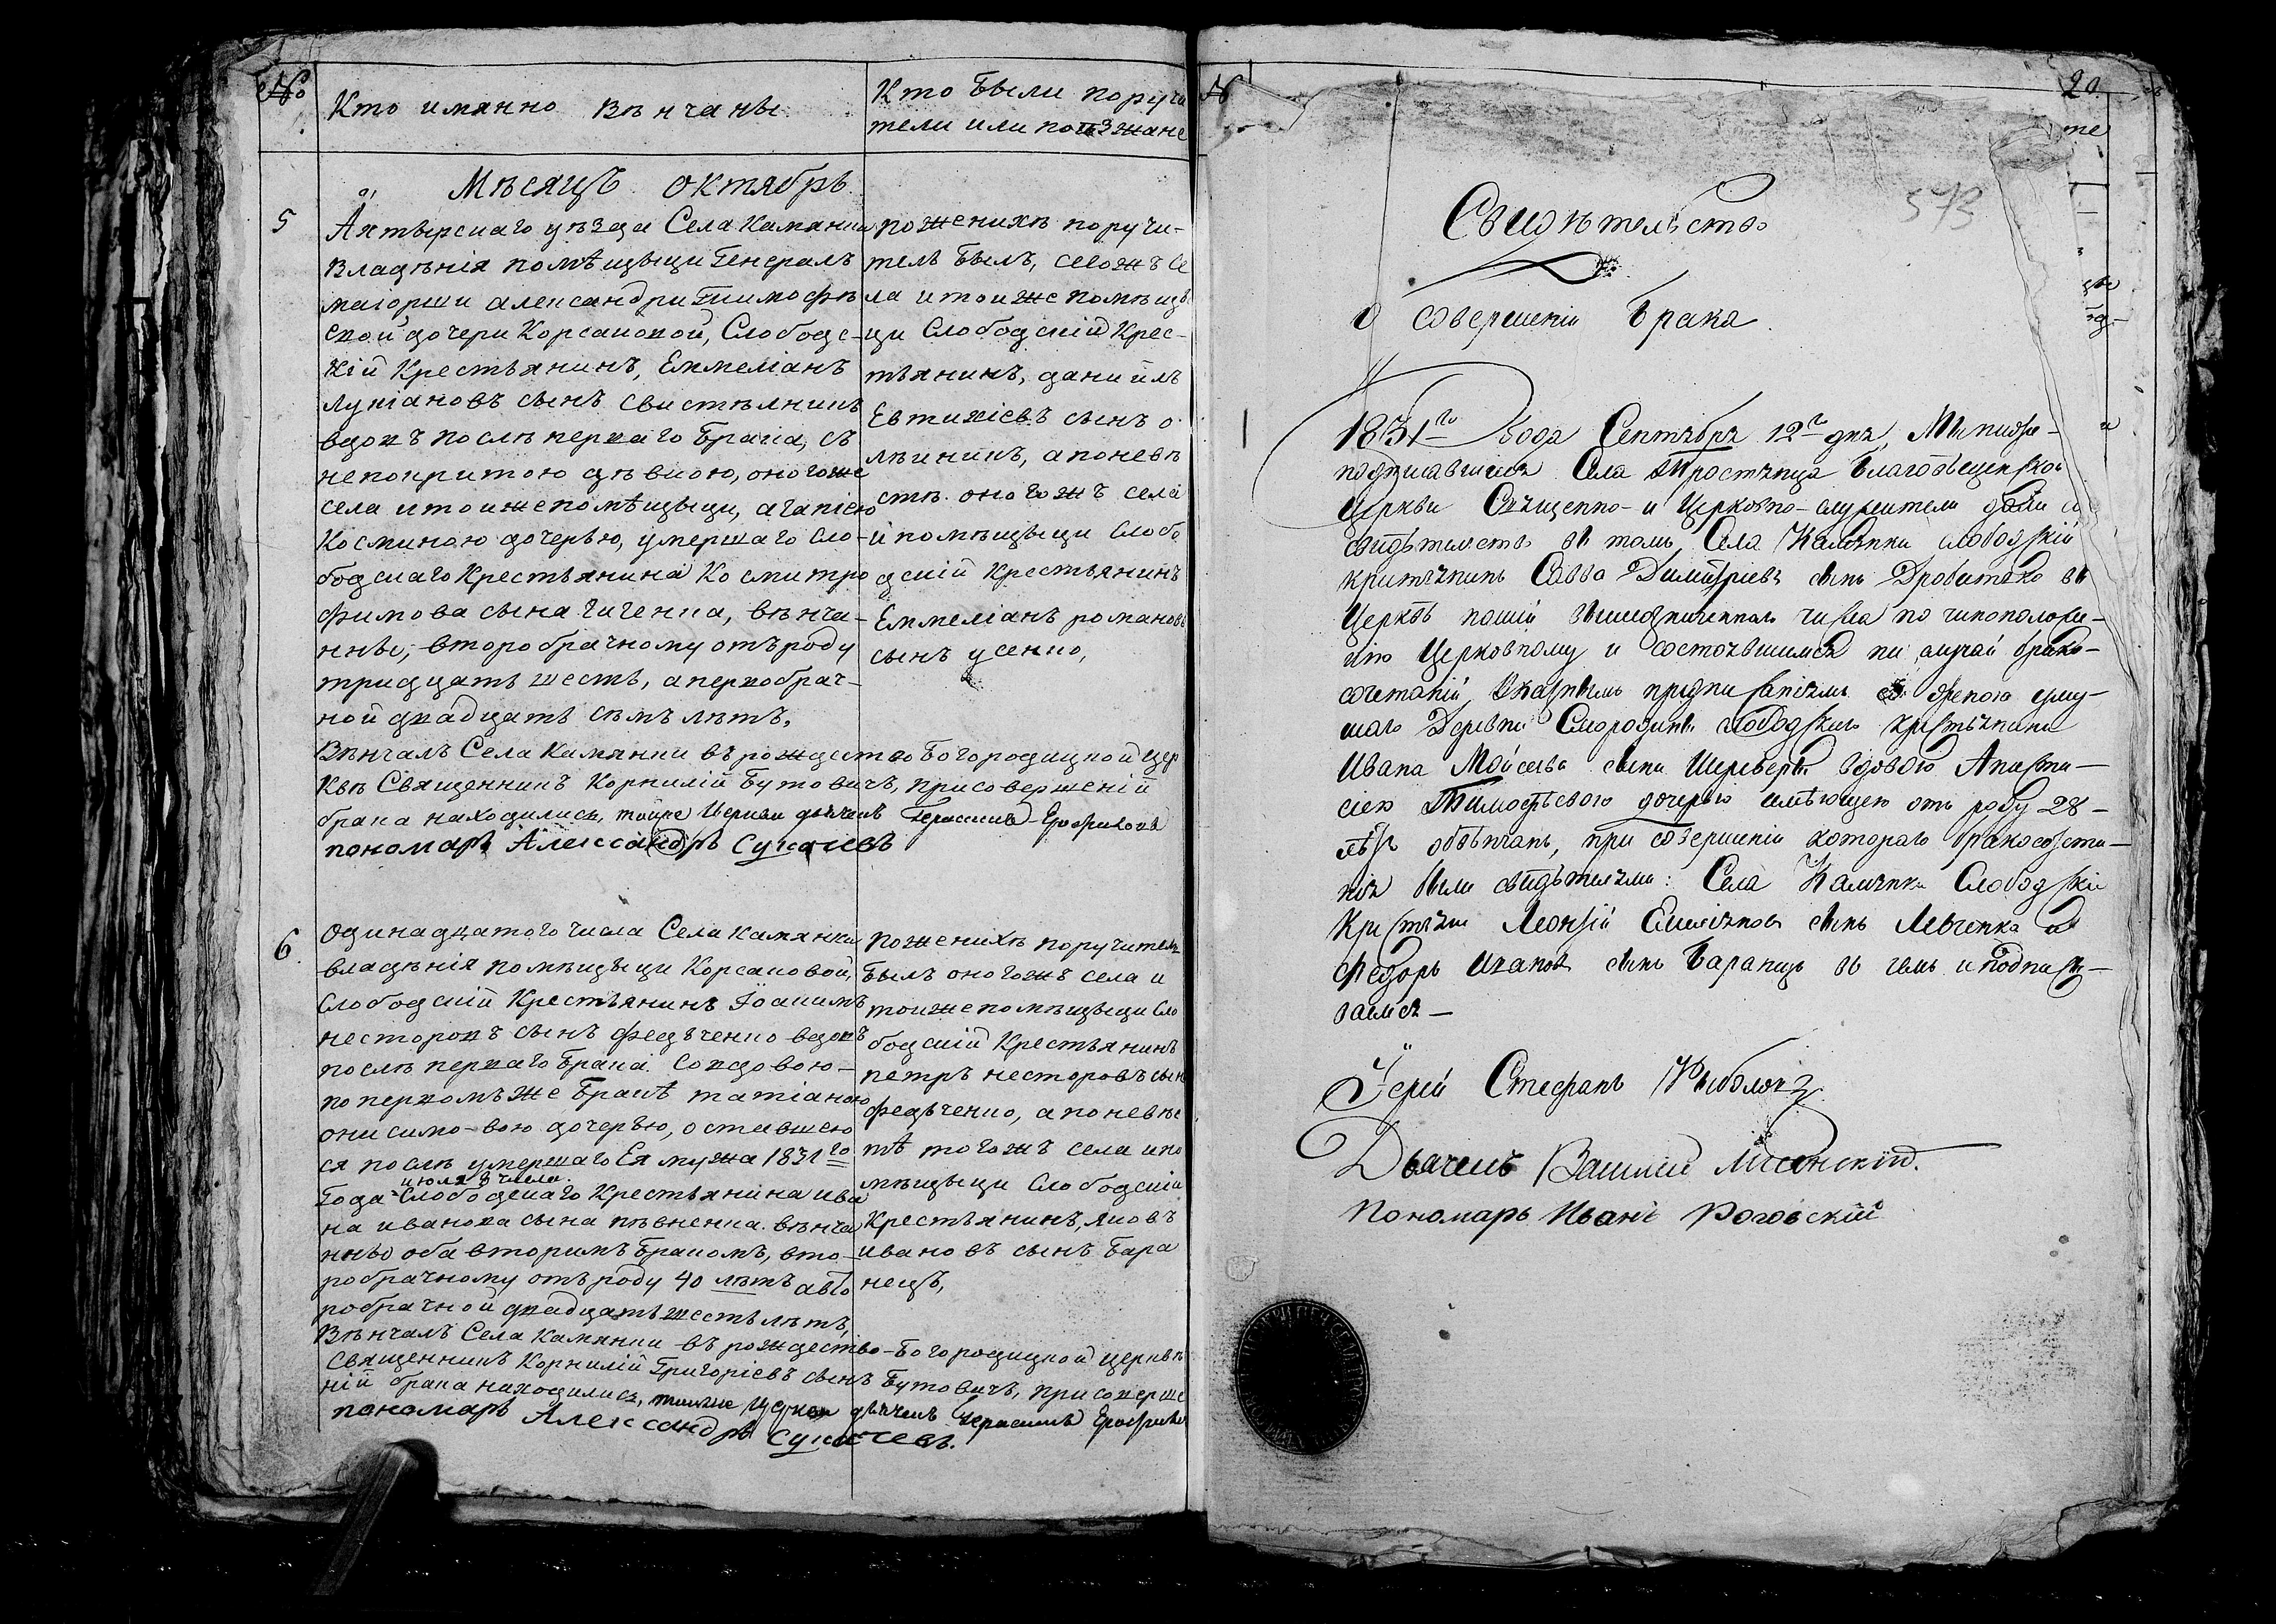 №
Кто имянно вѣнчаны
Кто были поручи
тели или поѣзжане
Мѣсяцъ октябрь
5
Ахтырскаго уѣзда Села Камянки
Владѣнія помѣщыци Генералъ
маіорши александри Тимофѣ
евой дочери Корсаковой, Слободс-
кій Крестьянинъ, Еммеліанъ
Лукіановъ сынъ
вдовъ послѣ перваго брака, съ
непокритою дѣвкою, оногоже
села и тоижепомѣщыци, агапіею
Косминою дочерью, умершаго Сло-
бодскаго Крестьянина Космы тро
фимова сына Гиченка, вѣнча-
нны, второбрачному отъ роду
тридцать шесть, а первобрач-
ной двадцать сѣмъ лѣтъ,
поженихѣ поручи-
тель былъ, сегожъ Се
ла и тоиже помѣщы
ци Слободскій Крес-
тьянинъ, даниилъ
Евтихіевъ сынъ о
лѣйникъ, апоневѣ
стѣ оногожъ села
и помѣщыци Слобо
дскій Крестьянинъ
Емmеліанъ романовъ
сынъ усенко,
Вѣнчалъ Села Камянки въ рождество Богородицкой цер
квѣ Священникъ Корнилій Бутовичъ, присовершеній
брака находились, тоижe Церкви дьячекъ Герасимъ Ерофиловъ
пономарь Александръ Сукачевъ
6
Одинадцатого числа Села Камянки
владѣнія помѣщыци Корсаковой,
Слободскій Крестьянинъ Іоакимъ
несторовъ сынъ федьченко вдовъ
послѣ перваго брака. Совдовою-
по первомъже бракѣ татіаною
онисимо-вою дочерью, оставшею
ся послѣ умершаго Ея мужа 1831го
июля 8 числа
Года Слободскаго Крестьянина ива
на иванова сына пѣвненка. вѣнча
нны оба вторимъ бракомъ, вто-
робрачному отъ роду 40 лѣтъ авто
робрачной двадцать шесть лѣтъ,
поженихѣ поручитель
былъ оногожъ села и
тоижепомѣщыци Сло
бодскій Крестьянинъ
петръ несторовъ сын
федьченко, апоневѣс
тѣ тогожъ села ипо
мѣщыци Слободскій
Крестьянинъ, яковъ
ивановъ сынъ Бара
нецъ,
Вѣнчалъ Села Камянки въ рождество-Богородицкой церквѣ
Священникъ Корнилій Григоріевъ сынъ Бутовичъ, присоверше
ній брака находились, тоиже Церкви дьячекъ Герасимъ Ерофилов
пономарь Александръ Сукачевъ.
№
20
те
573
Свидѣтельство
О совершеніи брака
1
1831го Года Сентября 12го дня, Мы нижe-
подписавшіися Села Тростянца Благовѣщенской
Церкви Священно- и Церковно-служители дали сі
свидѣтельство въ томъ Села Камянки слободскій
критьянинъ Савва Димитріевъ сынъ въ
Церквѣ нашій вышеозначенного числа по чиноположе-
нію Церковному и состоявшимся на случай брако-
сочетаній Указнымъ предписаніямъ съ женою умер-
шаго Деревни Смородинъ слободскаго крестьянина
Ивана Моисеева сына вдовою Анаста-
сіею Тимофѣевою дочерью имѣющею отъ роду 28-
лѣтъ обвѣнчанъ, при совершеніи котораго бракосочета-
нія были свидѣтелями: Села Камянки Слободскіе
Крестьяне Леонтій Емеліановъ сынъ Левченко и
Федоръ Ивановъ сынъ Баранецъ въ чемъ и подписы-
ваемся-
Іерей Стефанъ
Дьячекъ Василій
Пономарь Иванъ Роговскій